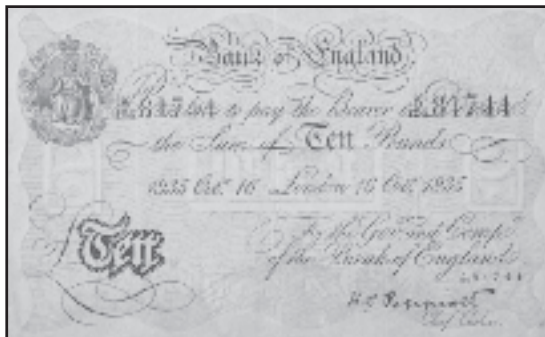 Bank of England
Promise to pay the Bearer on Demand
the Sum of Ten Pounds
1935 Oct. 16 London 16 Oct. 1935
£Ten
For the Govr. and Compa.
of the Bank of England
Chief Cashier